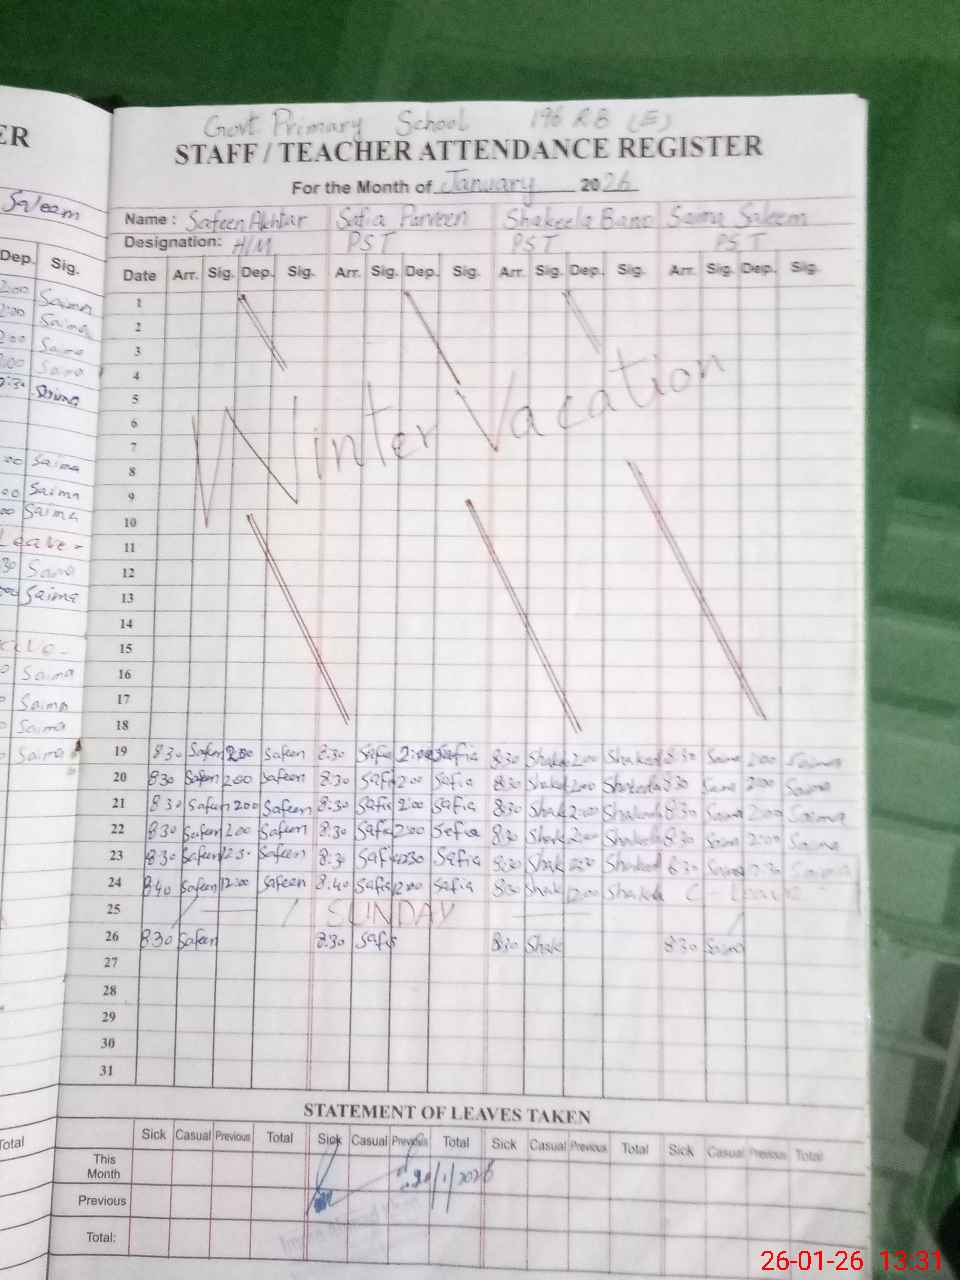 Govt. Primary School 196 RB (E)
STAFF / TEACHER ATTENDANCE REGISTER
For the Month of January 2026
Name : Safeen Akhtar Safia Parveen Shakeela Bano Saima Saleem
Designation: H/M PST PST PST
Date Arr. Sig. Dep. Sig. Arr. Sig. Dep. Sig. Arr. Sig. Dep. Sig. Arr. Sig. Dep. Sig.
1
2
3
4
5
6
Winter Vacation
7
8
9
10
11
12
13
14
15
16
17
18
19 8:30 Safeen 2:00 Safeen 8:30 Safia 2:00 Safia 8:30 Shak 2:00 Shakeel 8:30 Saima 2:00 Saima
20 830 Safeen 200 Safeen 8:30 Safi 2:00 Safia 8:30 Shak 2:00 Shakeela 8:30 Saima 2:00 Saima
21 830 Safeen 200 Safeen 8:30 Safia 2:00 Safia 8:30 Shak 2:00 Shakeel 8:30 Saima 2:00 Saima
22 830 Safeen 200 Safeen 8:30 Safia 2:00 Safia 8:30 Shak 2:00 Shakeel 8:30 Saima 2:00 Saima
23 830 Safeen 1230 Safeen 8:30 Safi 1230 Safia 8:30 Shak 1230 Shakeel 8:30 Saima 12:30 Saima
24 840 Safeen 12:00 Safeen 8:40 Safia 1200 Safia 8:30 Shak 1200 Shakeela C - Leave
25 SUNDAY
26 830 Safeen 8:30 Safia 8:30 Shak 8:30 Saima
27
28
29
30
31
STATEMENT OF LEAVES TAKEN
Sick Casual Previous Total Sick Casual Previous Total Sick Casual Previous Total Sick Casual Previous Total
This Month
20/1/2026
Previous
Total:
ER
Saleem
Dep. Sig.
2:00 Saima
2:00 Saima
2:00 Saima
2:00 Saima
Saima
00 Saima
00 Saima
00 Saima
Leave -
30 Saima
Saima
Saima
Saima
Saima
Saima
Total
26-01-26 13:31